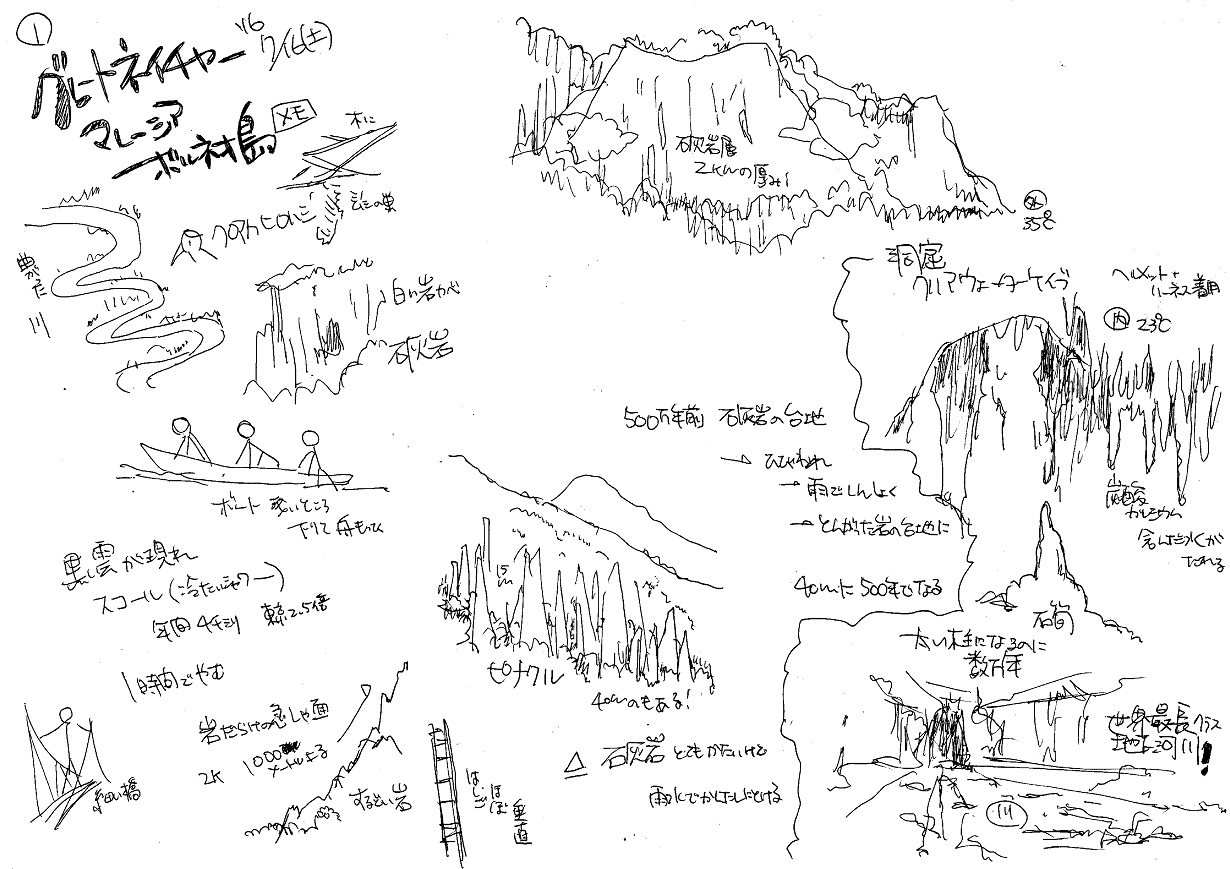 ①
'16 7/16(土)
グレートネイチャー
マレーシア
ボルネオ島
メモ
木に
クロアカヒロハシ
曲がった川
白い岩かべ
石灰岩
ボート 浅いところ
下りて 舟もつ
黒い雲が現れ
スコール(冷たいシャワー)
年間4千ミリ 東京2.5倍
1時間でやむ
細い橋
岩だらけの急しゃ面
2K 1000メートル
するどい岩
はしご ほぼ垂直
石灰岩層
2Kmの厚み!
外
35℃
洞窟
クリアウォーターケイブ
ヘルメット+
ハーネス着用
内 23℃
500万年前 石灰岩の台地
→ ひびわれ
→ 雨でしんしょく
→ とんがった岩の台地に
15m
ピナクル
40mのもある!
石灰岩 とてもかたいけど
雨水でかんたんにとける
炭酸
カルシウム
含んだ水が
たれる
石筍
太い柱になるのに
数万年
世界最長クラス
地下河川!
川